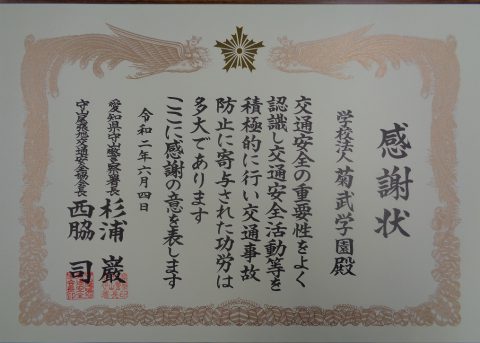 感謝状
学校法人 菊武学園 殿
交通安全の重要性をよく
認識し交通安全活動等を
積極的に行い交通事故
防止に寄与された功労は
多大であります
ここに感謝の意を表します
令和二年六月四日
愛知県守山警察署長 杉浦 巌
西脇 司